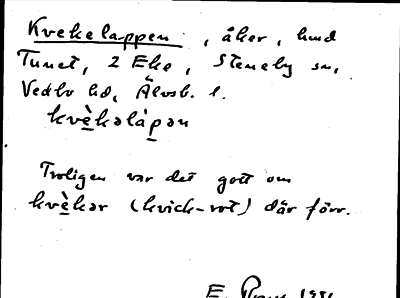 Kvekelappen, åker, hmd
Tunet, 2 Eke, Steneby sn,
Vedbo hd, Älvsb. l.
kvèkəlàpən
Troligen var det gott om
kvèkər (kvick-rot) där förr.
E.